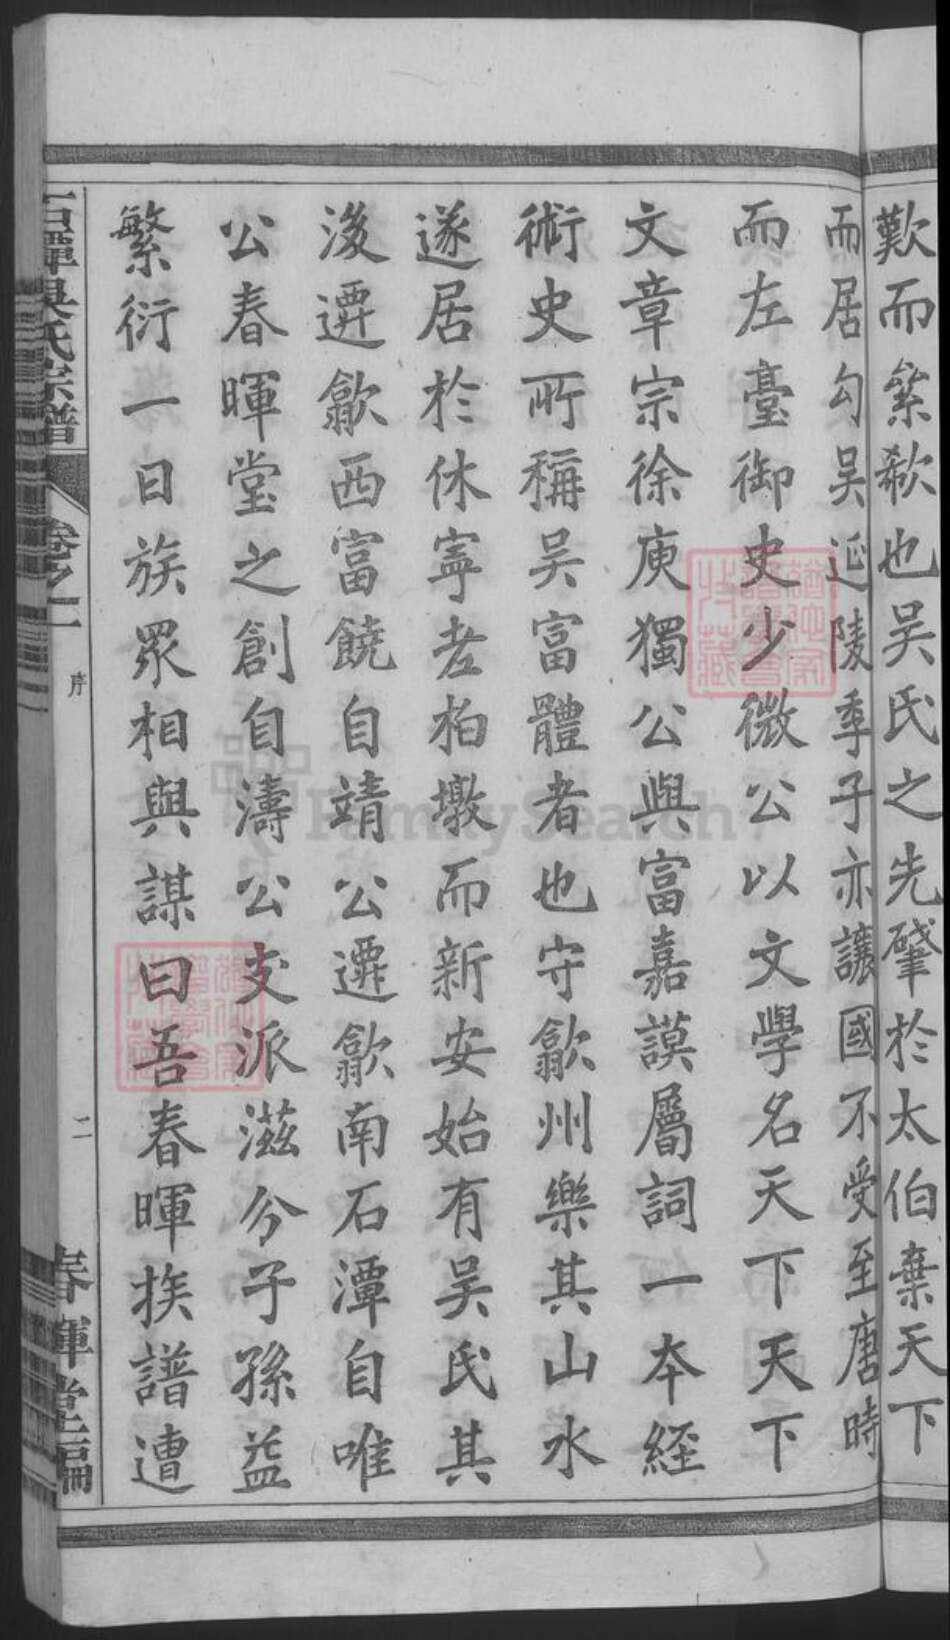 歎而絫欷也吴氏之先肇於太伯棄天下
而居勾吴延陵季子亦讓國不受至唐時
而左臺御史少微公以文學名天下天下
文章宗徐庾獨公與富嘉謨屬詞一本經
術史所稱吴富體者也守歙州樂其山水
遂居於休寧老柏墩而新安始有吴氏其
後遷歙西富饒自靖公遷歙南石潭自唯
公春暉堂之創自濤公支派滋分子孫益
繁衍一日族眾相與謀曰吾春暉族譜遭
石潭吳氏宗譜
卷之一
序
二
春暉堂編
FamilySearch